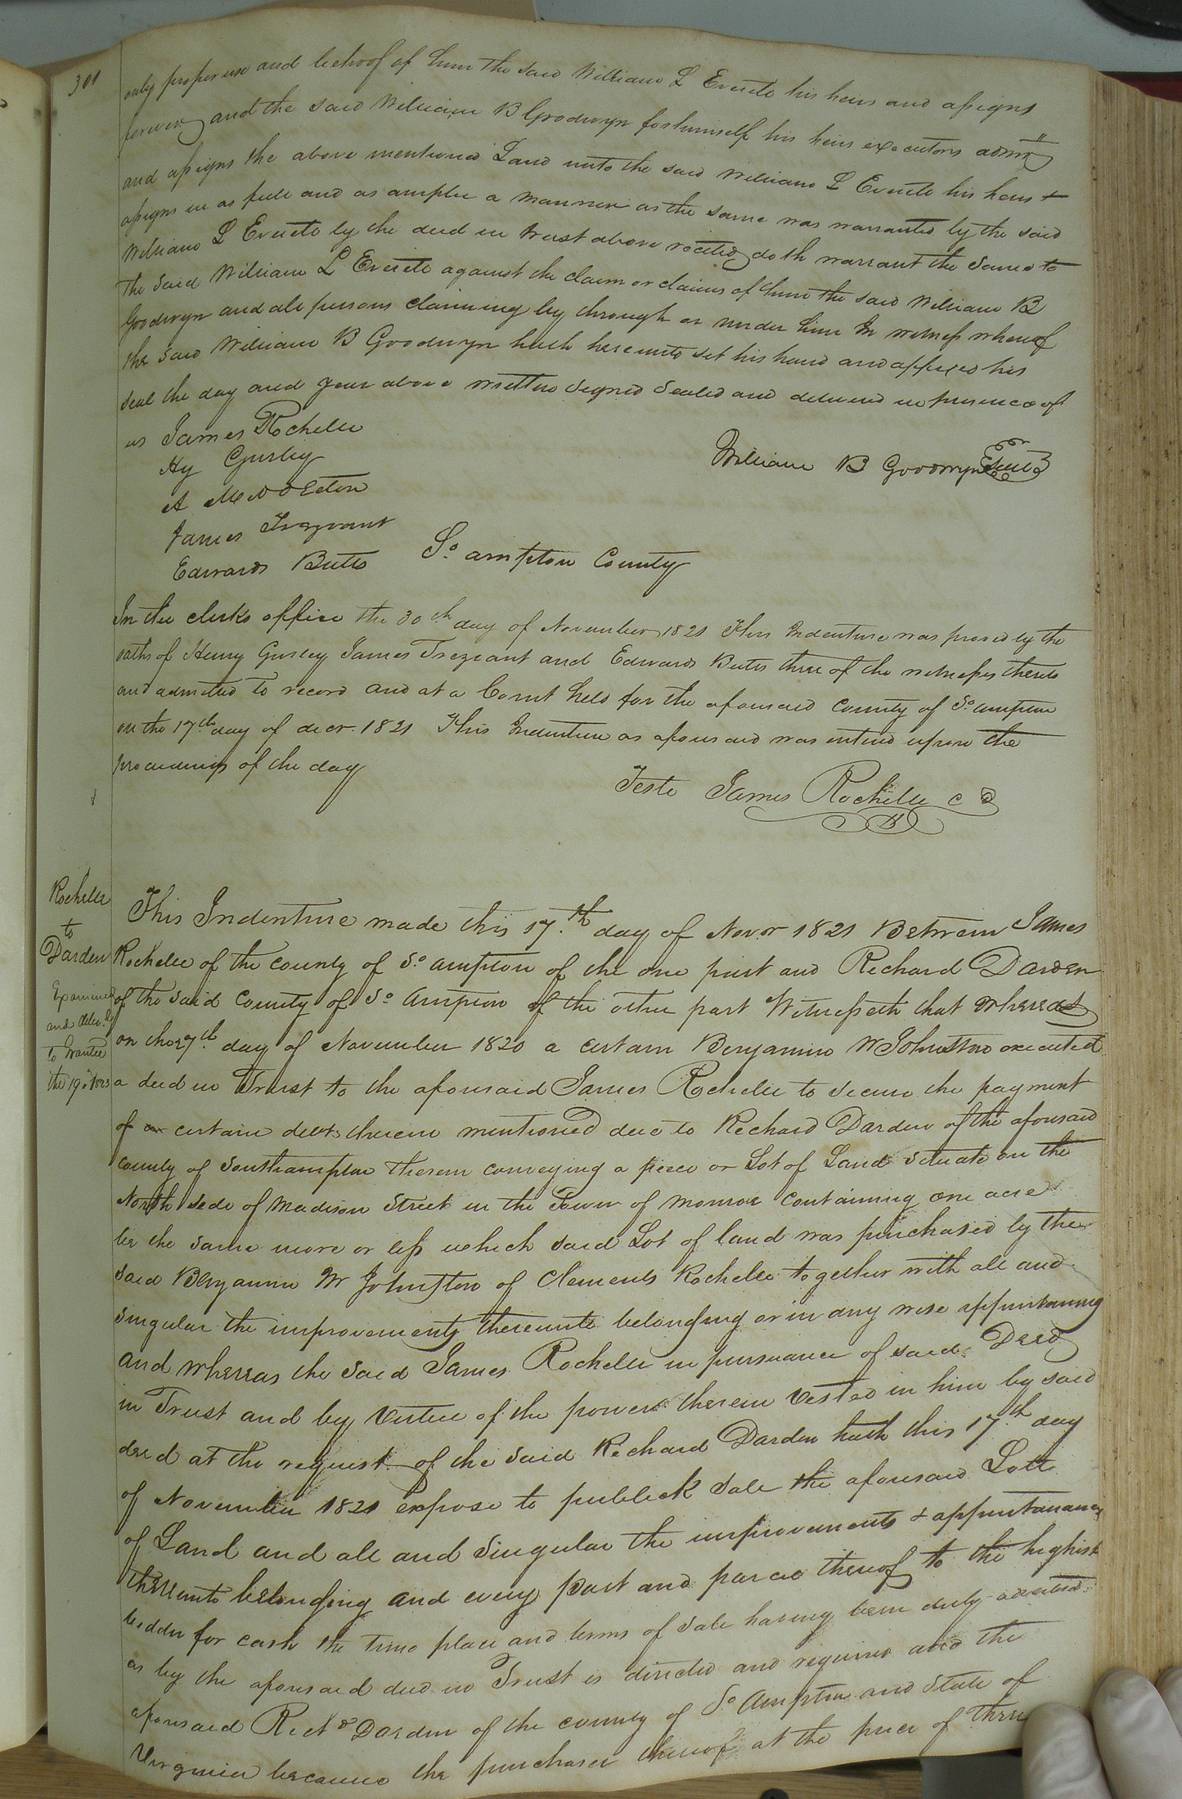 301
only proper use and behoof of him the said William L Everite his heirs and assigns
forever and the said William B Goodwyn for himself his heirs executors admrs
and assigns the above mentioned Land unto the said William L Everite his heirs +
assigns in as full and as ample a manner as the same was warranted by the said
William L Everite by the deed in trust above recited doth warrant the same to
the said William L Everite against the claim or claims of him the said William B
Goodwyn and all persons claiming by through or under him In witness whereof
the said William B Goodwyn hath hereunto set his hand and affixed his
seal the day and year above written Signed Sealed and delivered in presence of
us James Rochelle
Hy Gurley
William B Goodwyn Seal
A Middleton
James Trezvant
Edwards Butts
So ampton County
In the clerks office the 30th day of November 1821 This Indenture was proved by the
oaths of Henry Gurley James Trezvant and Edwards Butts three of the witnesses thereto
and admitted to record and at a Court held for the aforesaid County of So ampton
on the 17th day of decr 1821 This Indenture as aforesaid was entered upon the
proceedings of the day
Teste James Rochelle C
Rochelle
to
Darden
Examined
and deliv.d
to Grantee
This Indenture made this 17th day of Novr 1821 Between James
Rochelle of the county of So ampton of the one part and Richard Darden
of the said County of So ampton of the other part Witnesseth that whereas
on the 27th day of November 1820 a certain Benjamin W Johnston executed
a deed in Trust to the aforesaid James Rochelle to secure the payment
of a certain debt therein mentioned due to Richard Darden of the aforesaid
county of Southampton therein conveying a piece or Lot of Land situate on the
North side of Madison Street in the Town of Monroe containing one acre
be the same more or less which said Lot of land was purchased by the
said Benjamin W Johnston of Clements Rochelle together with all and
singular the improvements thereunto belonging or in any wise appertaining
and whereas the said James Rochelle in pursuance of said Deed
in Trust and by virtue of the powers therein vested in him by said
deed at the request of the said Richard Darden hath this 17th day
of November 1821 expose to publick sale the aforesaid Lott
of Land and all and singular the improvements + appurtenances
thereunto belonging and every part and parcel thereof to the highest
bidder for cash the time place and terms of sale having been duly advertised
as by the aforesaid deed in Trust is directed and required and the
aforesaid Richd Darden of the county of So Ampton and State of
Virginia became the purchaser thereof at the price of three